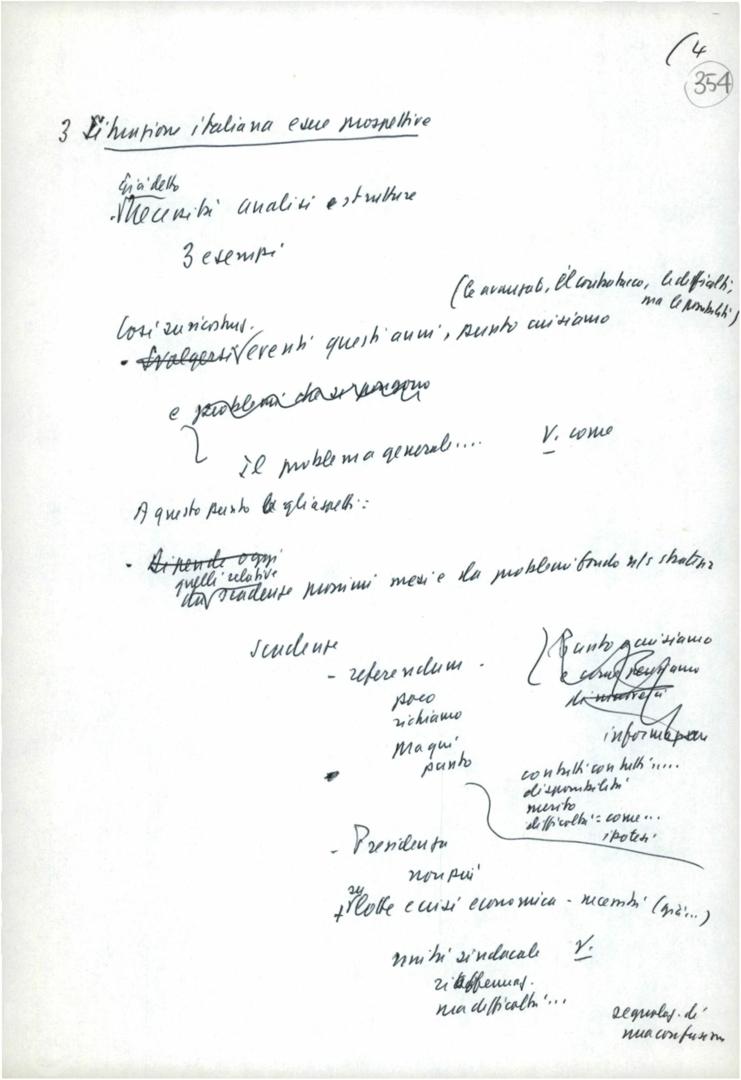 (4
354
3 Situazione italiana e sue prospettive
Già detto
Necessità analisi e strutture
3 esempi
(le avanzate, il contrattacco, le difficoltà,
ma le possibilità)
Così su ricostruz.
• Svolgersi eventi questi anni, punto cui siamo
e problemi che si pongono
Il problema generale.... V. come
A questo punto gli aspetti:
• Dipende oggi
quelli relative
da scadenze prossimi mesi e da problemi fondo n/s strategia
scadenze
- referendum -
poco
richiamo
Ma qui
punto
Punto a cui siamo
e come pensiamo
di
informazioni
contatti con tutti....
disponibilità
merito
difficoltà: come...
ipotesi
- Presidenza
non più
su
+ lotte e crisi economica - necessità (già...)
unità sindacale V.
riaffermaz.
ma difficoltà...
regolaz. di
una confusione